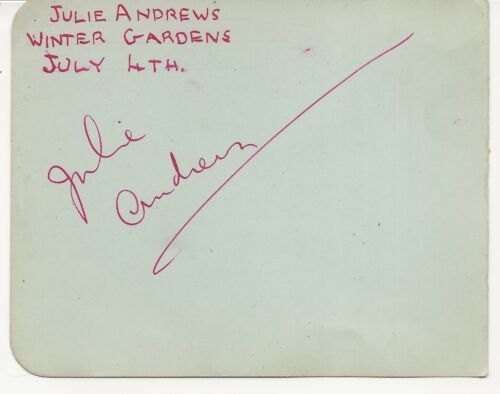 JULIE ANDREWS
WINTER GARDENS
JULY 4TH.
Julie
Andrews